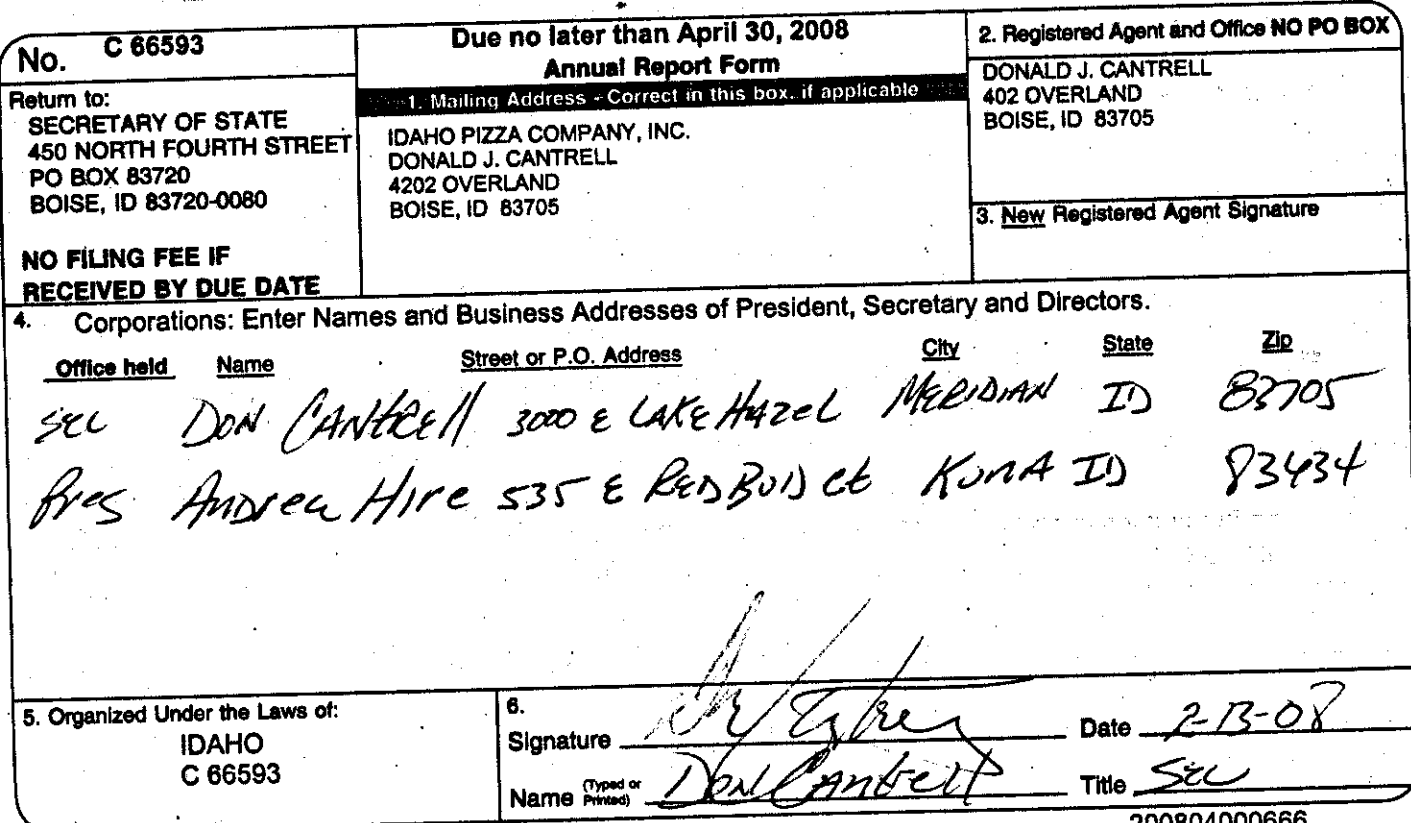 No. C 66593
Return to:
SECRETARY OF STATE
450 NORTH FOURTH STREET
PO BOX 83720
BOISE, ID 83720-0080
NO FILING FEE IF
RECEIVED BY DUE DATE
Due no later than April 30, 2008
Annual Report Form
1. Mailing Address - Correct in this box, if applicable
IDAHO PIZZA COMPANY, INC.
DONALD J. CANTRELL
4202 OVERLAND
BOISE, ID 83705
2. Registered Agent and Office NO PO BOX
DONALD J. CANTRELL
402 OVERLAND
BOISE, ID 83705
3. New Registered Agent Signature
4. Corporations: Enter Names and Business Addresses of President, Secretary and Directors.
Office held Name Street or P.O. Address City State Zip
Sec Don Cantrell 3000 E Lake Hazel Meridian ID 83705
Pres Andrea Hire 535 E RedBud ct Kuna ID 83434
5. Organized Under the Laws of:
IDAHO
C 66593
6.
Signature Date 2-13-08
Name (Typed or Printed) Don Cantrell Title Sec
200804000666